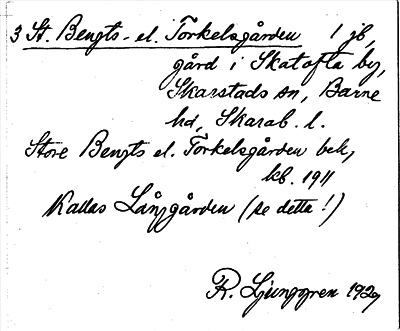 3 St. Bengts- el. Torkelsgården 1 jb,
gård i Skatofta by,
Skarstads sn, Barne
hd, Skarab. l.
Store Bengts el. Torkelsgården bek,
kb. 1911
Kallas Långgården (se detta!)
R. Ljunggren 1929